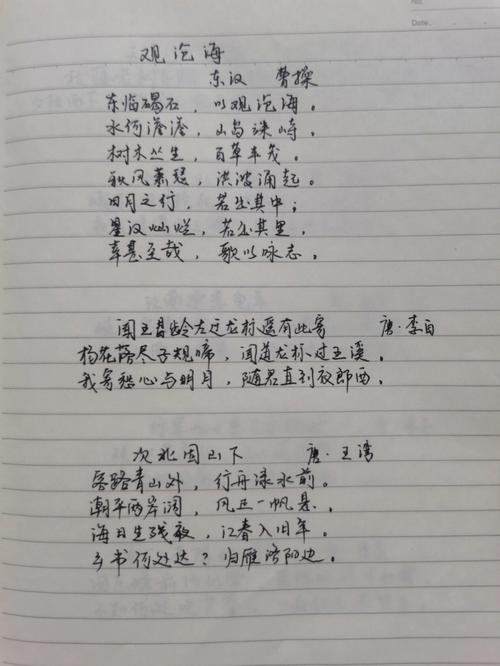 No.
Date.
观沧海
东汉 曹操
东临碣石，以观沧海。
水何澹澹，山岛竦峙。
树木丛生，百草丰茂。
秋风萧瑟，洪波涌起。
日月之行，若出其中；
星汉灿烂，若出其里，
幸甚至哉，歌以咏志。
闻王昌龄左迁龙标遥有此寄 唐·李白
杨花落尽子规啼，闻道龙标过五溪。
我寄愁心与明月，随君直到夜郎西。
次北固山下 唐·王湾
客路青山外，行舟绿水前。
潮平两岸阔，风正一帆悬。
海日生残夜，江春入旧年。
乡书何处达？归雁洛阳边。